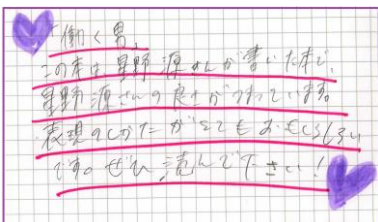 「働く男」
この本は星野源さんが書いた本で、
星野源さんの良さがつまっています。
表現のしかたがとてもおもしろい
です。ぜひ読んで下さい！